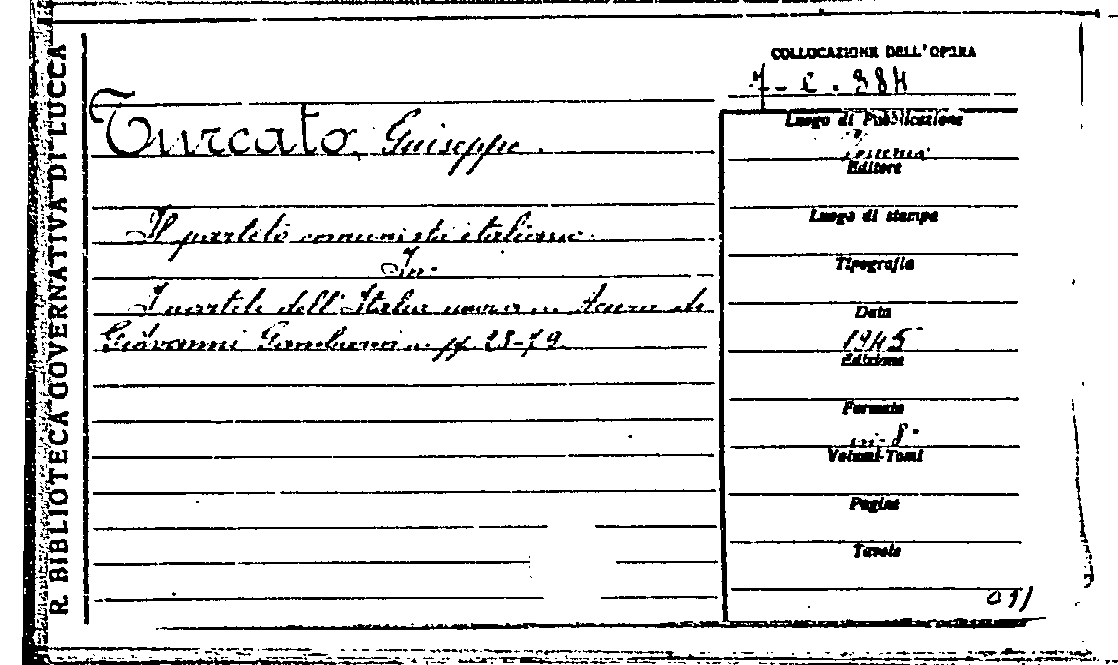 R. BIBLIOTECA GOVERNATIVA DI LUCCA
COLLOCAZIONE DELL'OPERA
Turcato, Giuseppe.
Il partito comunista italiano.
In:
I partiti dell'Italia nuova ... A cura di
Giovanni pp. 23-79.
Luogo di Pubblicazione
Venezia
Editore
Luogo di stampa
Tipografia
Data
1945
Edizione
Formato
in-8°
Volumi-Tomi
Pagine
Tavole